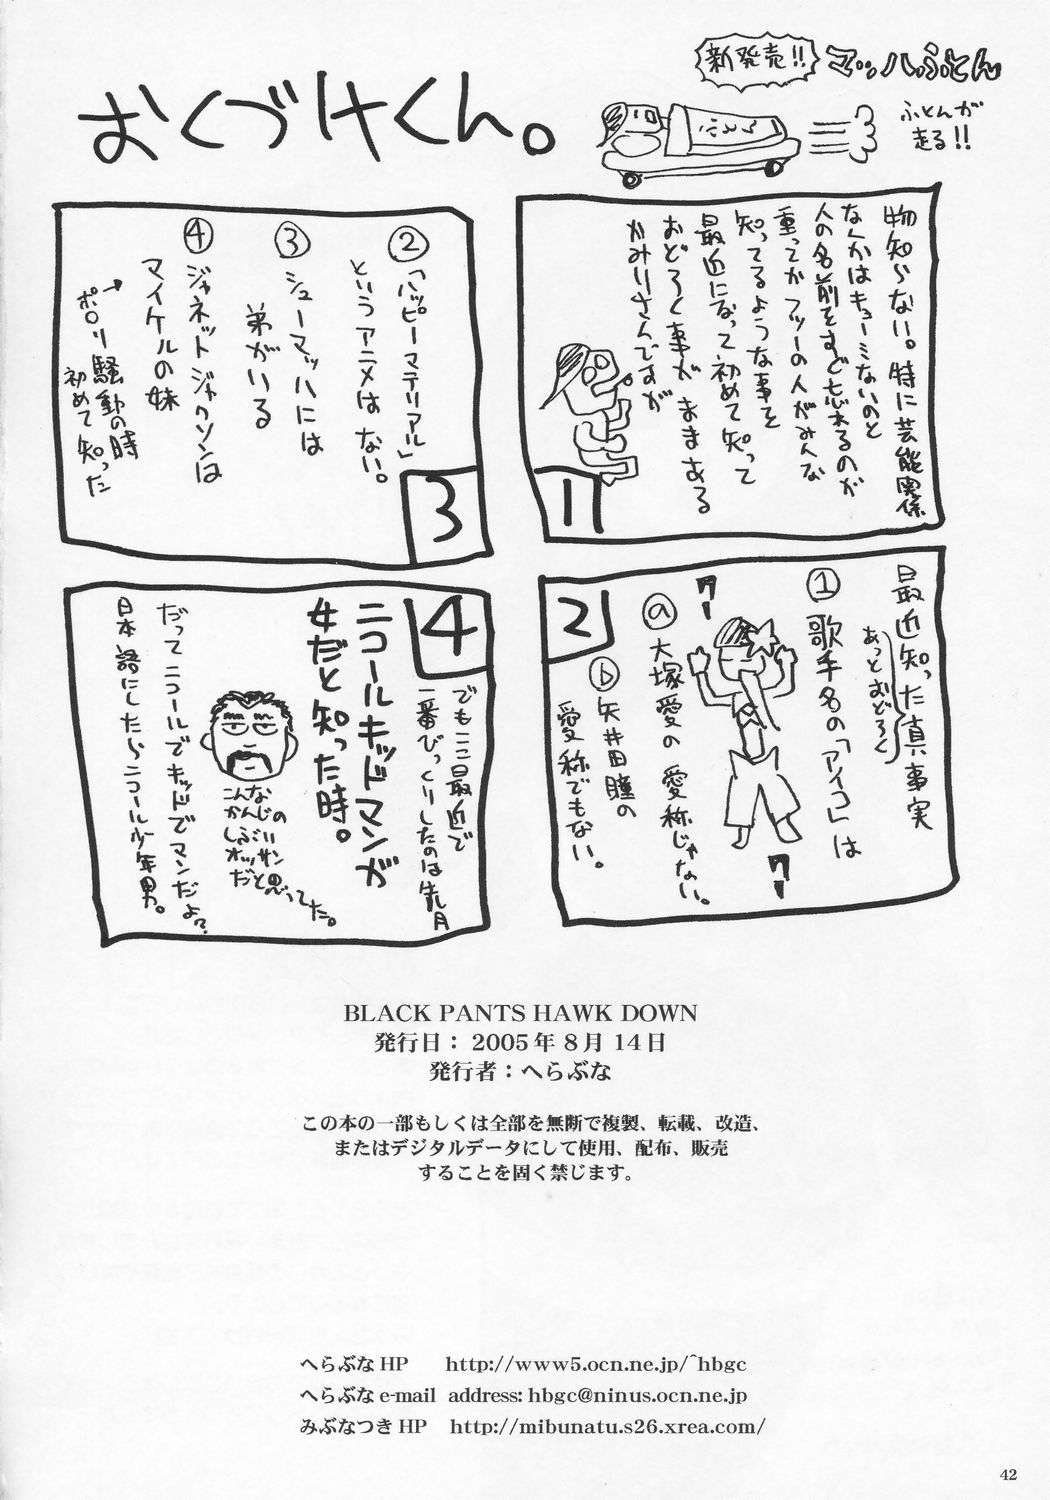 おくづけくん。
新発売!!
マッハふとん
ふとんが
走る!!
ふとん
物知らない。特に芸能関係
なんかはキョーミないのと
人の名前をすぐ忘れるのが
重ってかフツーの人がみんな
知ってるような事を
最近になって初めて知って
おどろく事がままある
かみりさんですが
1
最近知った真事実
あっとおどろく
①歌手名の「アイコ」は
ⓐ大塚愛の愛称じゃない。
ⓑ矢井田瞳の
愛称でもない。
クー
クー
2
②「ハッピーマテリアル」
というアニメはない。
③シューマッハには
弟がいる
④ジャネットジャクソンは
マイケルの妹
→ポロリ騒動の時
初めて知った
3
4
でもここ最近で
一番びっくりしたのは先月
ニコールキッドマンが
女だと知った時。
こんな
かんじの
しぶい
オッサン
だと思ってた。
だってニコールでキッドでマンだよ?
日本語にしたらニコール少年男。
BLACK PANTS HAWK DOWN
発行日：2005年8月14日
発行者：へらぶな
この本の一部もしくは全部を無断で複製、転載、改造、
またはデジタルデータにして使用、配布、販売
することを固く禁じます。
へらぶなHP http://www5.ocn.ne.jp/~hbgc
へらぶなe-mail address: hbgc@ninus.ocn.ne.jp
みぶなつきHP http://mibunatu.s26.xrea.com/
42